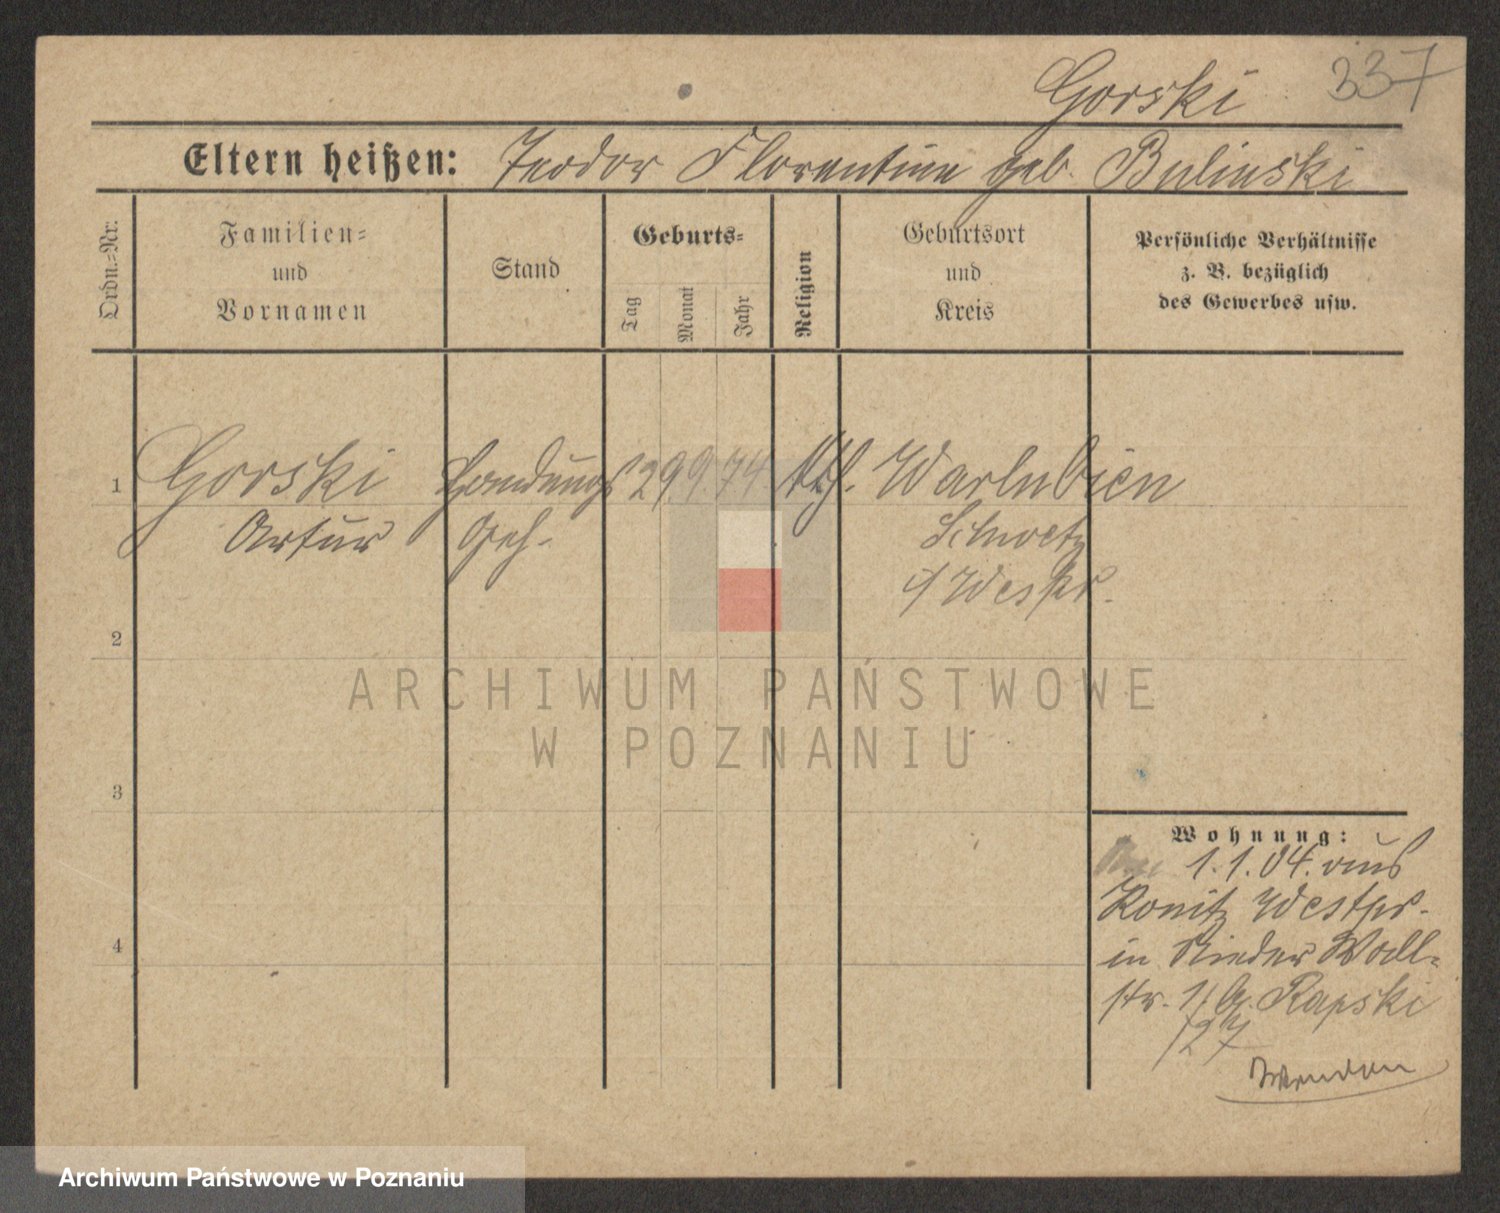 Gorski 337
Eltern heißen: Teodor Florentine geb. Bulinski
Ordn.-Nr.
Familien-
und
Vornamen
Stand
Geburts-
Tag
Monat
Jahr
Religion
Geburtsort
und
Kreis
Persönliche Verhältnisse
z. B. bezüglich
des Gewerbes usw.
1 Gorski Handlungs 29 9. 74. Kth. Warlubien
Artur Geh. Schwetz
i/ Wespr.
2
3
4
Wohnung:
1. 1. 04. aus
Konitz Westpr.
in Nieder Wall-
str. 1/ b. Rapski
/27
ARCHIWUM PAŃSTWOWE
W POZNANIU
Archiwum Państwowe w Poznaniu